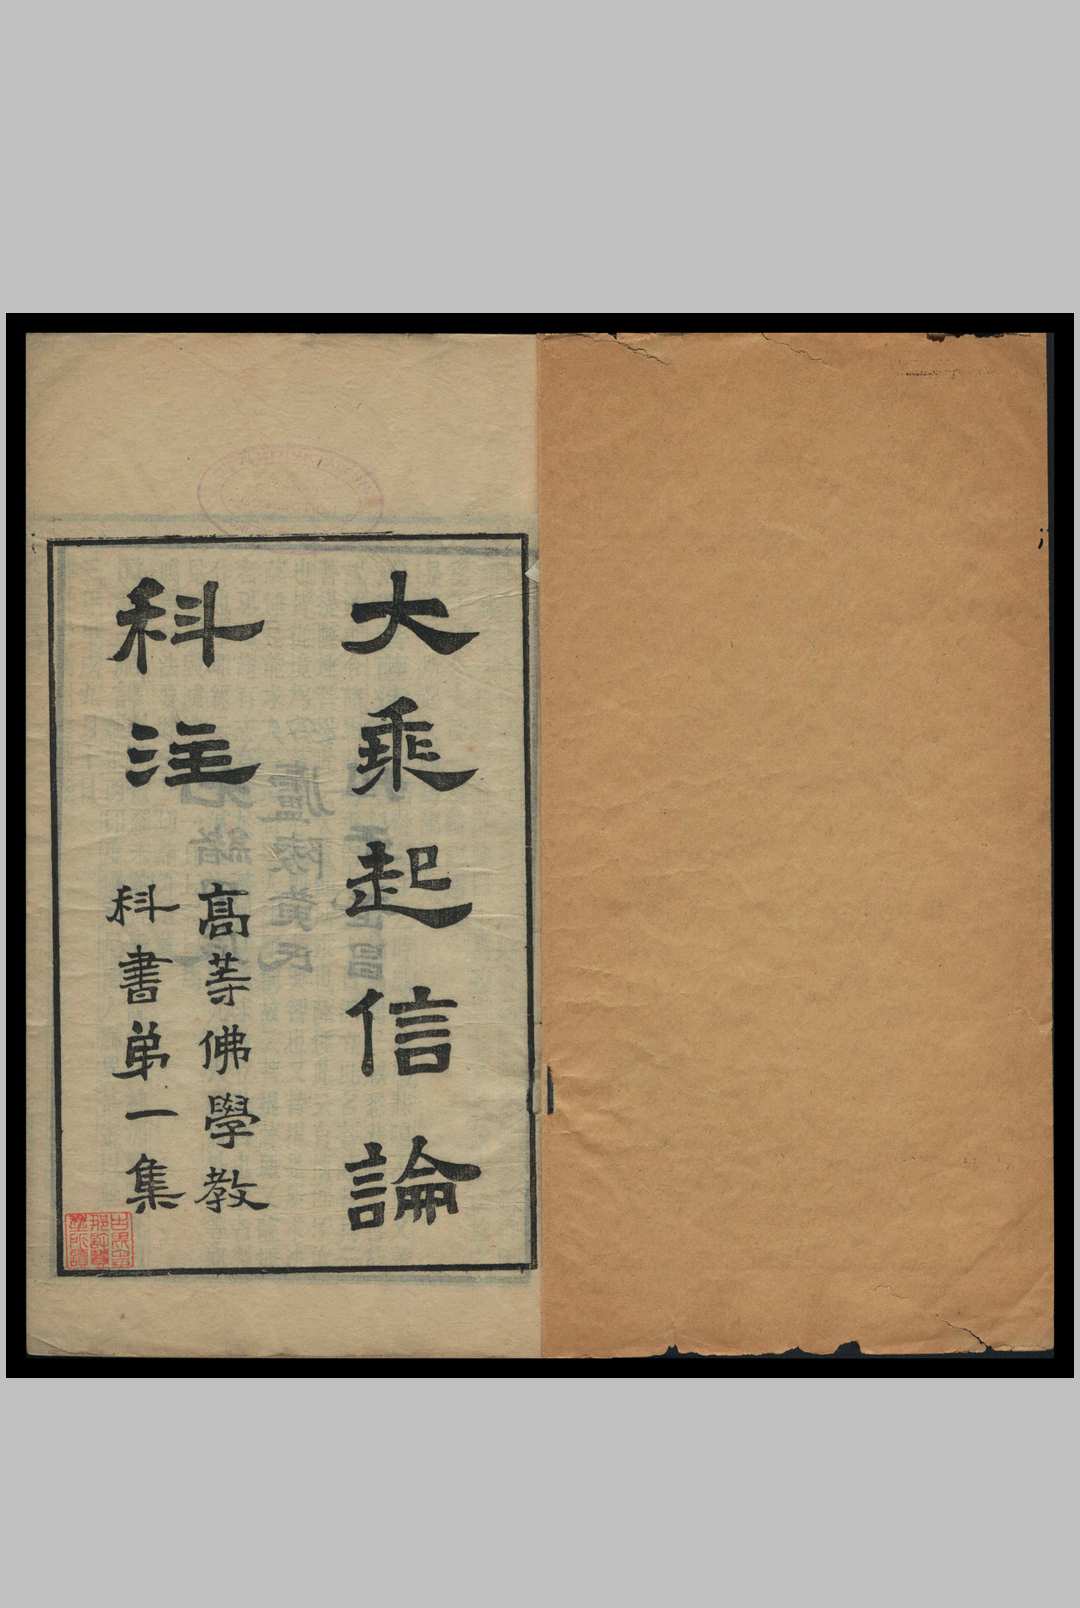 大乘起信論
科注
高等佛學教
科書弟一集